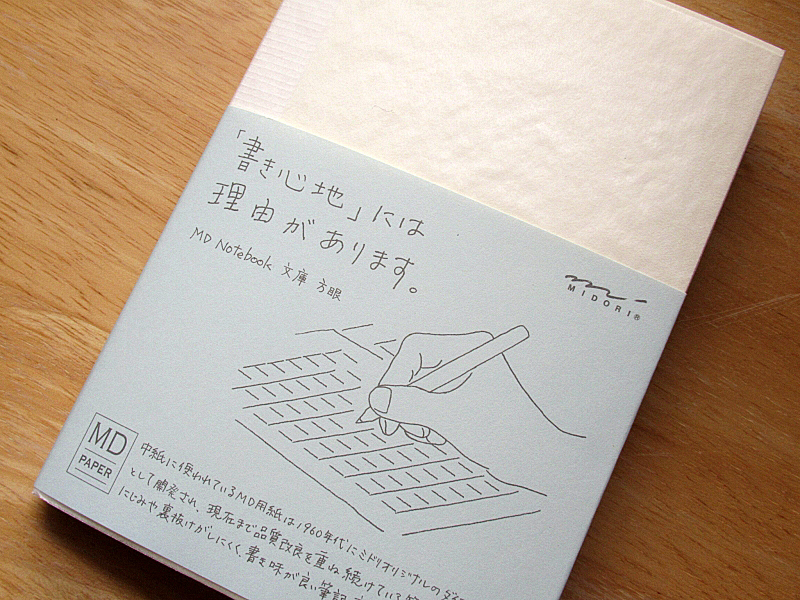 「書き心地」には
理由があります。
MD Notebook 文庫 方眼
MIDORI®
MD
PAPER
中紙に使われているMD用紙は1960年代にミドリオリジナルのダイ
として開発され、現在まで品質改良を重ね続けている筆
にじみや裏抜けがしにくく、書き味が良い筆記